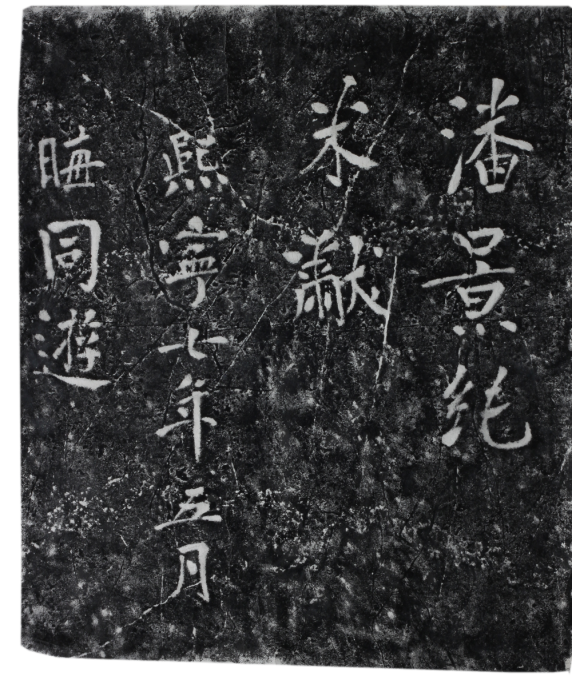 潘景純
米黻
熙寧七年五月
晦同遊